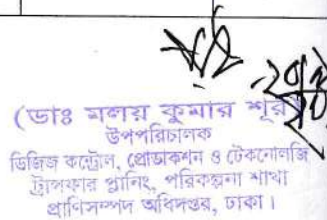 (ডাঃ মলয় কুমার শূর)
উপপরিচালক
ডিজিজ কন্ট্রোল, প্রোডাকশন ও টেকনোলজি
ট্রান্সফার প্লানিং, পরিকল্পনা শাখা
প্রাণিসম্পদ অধিদপ্তর, ঢাকা।